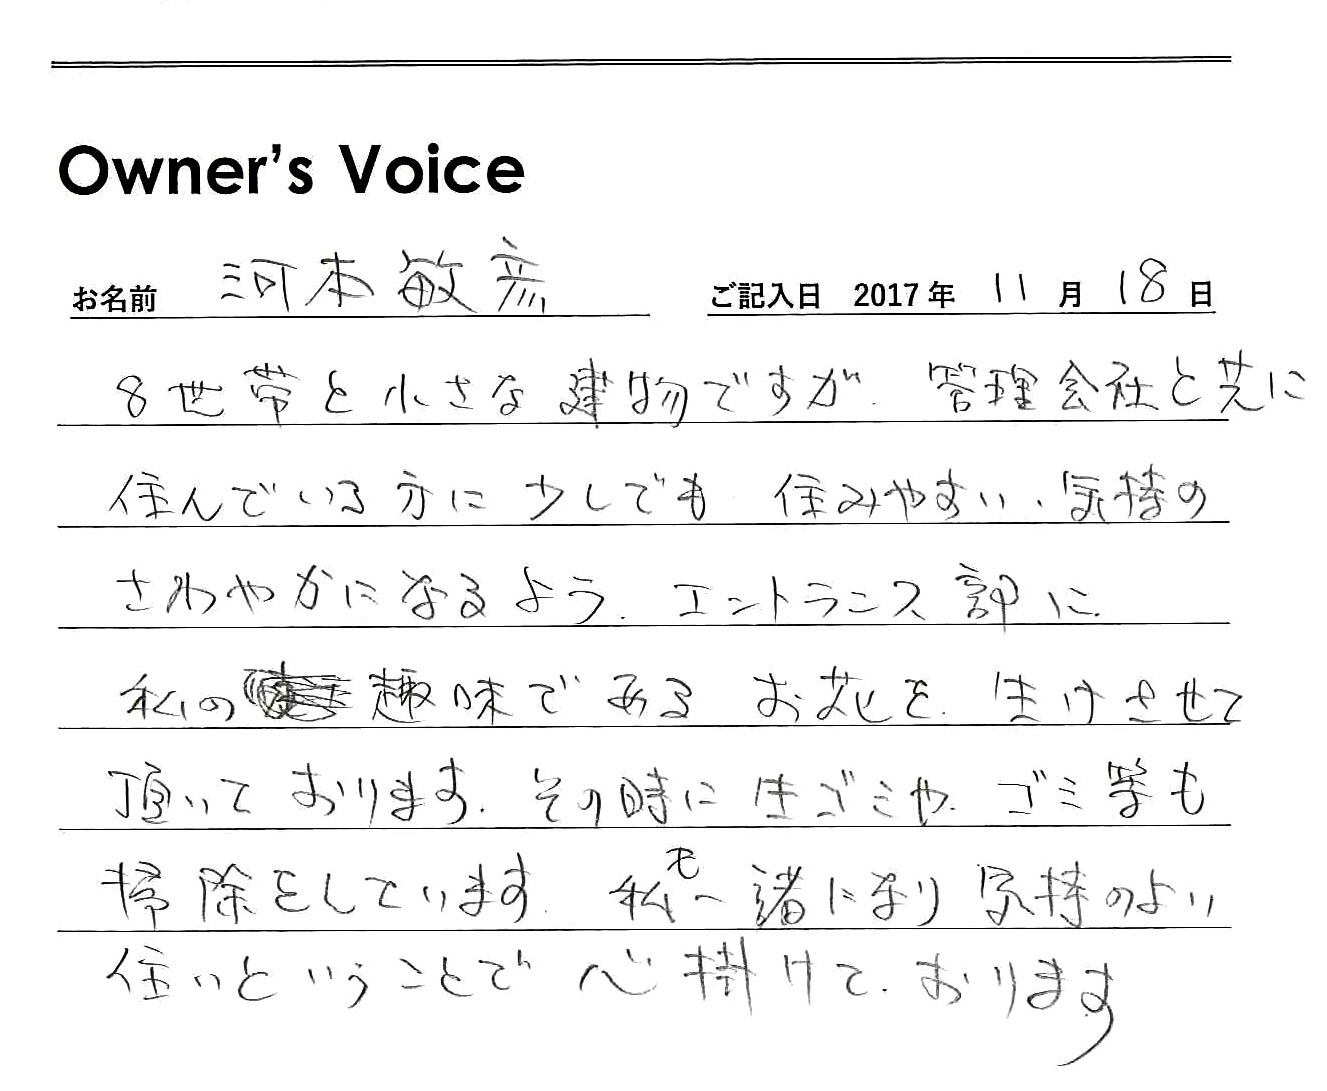 Owner's Voice
お名前 河本敏彦 ご記入日 2017年 11月 18日
8世帯と小さな建物ですが、管理会社と共に
住んでいる方に少しでも 住みやすい、気持の
さわやかになるよう、エントランス部に
私の趣味である お花を、生けさせて
頂いております。その時に生ゴミや、ゴミ等も
掃除をしています。私も一緒になり気持のよい
住いということで心掛けて、おります